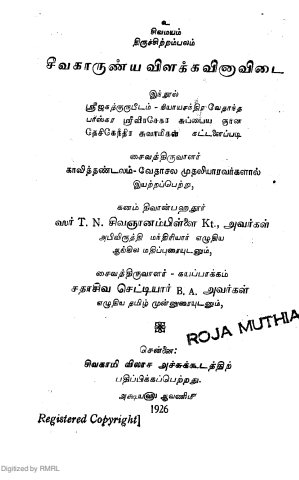 உ
சிவமயம்
திருச்சிற்றம்பலம்
சீவகாருண்ய விளக்கவினாவிடை
இந்நூல்
ஸ்ரீஜகத்குருபீடம் - நியாயசந்திர வேதாந்த
பாஸ்கர ஸ்ரீவீரசேகர சுப்பைய ஞான
தேசிகேந்திர சுவாமிகள் கட்டளைப்படி
சைவத்திருவாளர்
காவித்தண்டலம்-வேதாசல முதலியாரவர்களால்
இயற்றப்பெற்று,
கனம் திவான்பஹதூர்
T. N. சிவஞானம்பிள்ளை Kt., அவர்கள்
அபிவிருத்தி மந்திரியார் எழுதிய
ஆங்கில மதிப்புரையுடனும்,
சைவத்திருவாளர் - கயப்பாக்கம்
சதாசிவ செட்டியார் B. A. அவர்கள்
எழுதிய தமிழ் முன்னுரையுடனும்,
ROJA MUTHIA
சென்னை:
சிவகாமி விலாச அச்சுக்கூடத்திற்
பதிப்பிக்கப்பெற்றது.
அக்ஷயவு ஆவணிமீ
1926
Registered Copyright]
Digitized by RMRL